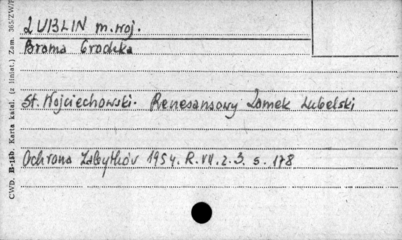 LUBLIN m. woj.
Brama Grodzka
St. Wojciechowski. Renesansowy Zamek Lubelski
Ochrona Zabytków 1954. R. VII. z. 3. s. 178
CWD. B-15b. Karta katal. (z liniat.) Zam. 365/ZW/